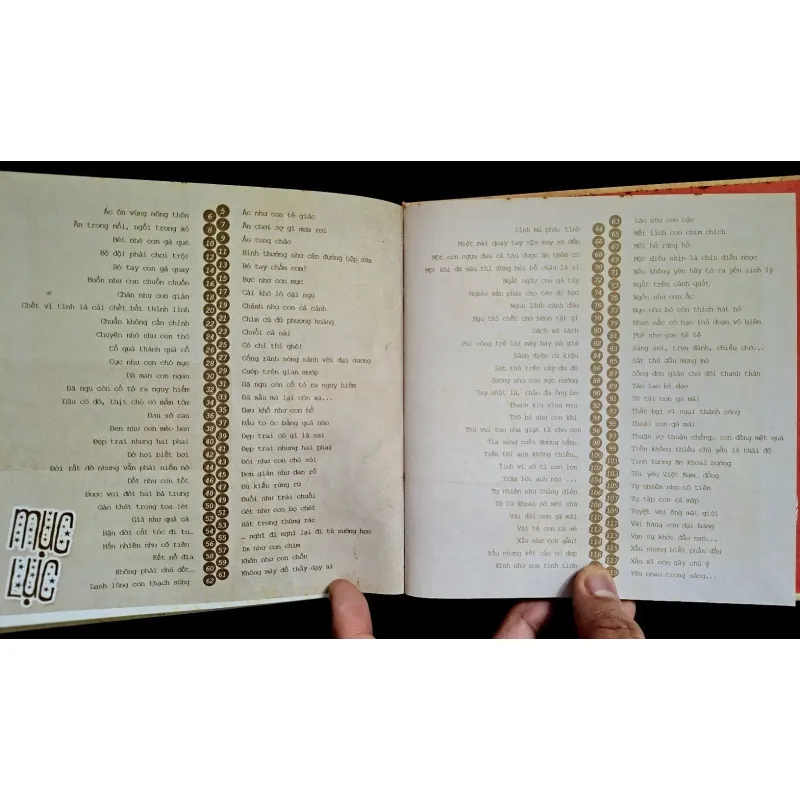 MỤC LỤC
Ác ôn vùng nông thôn 6
5 Ác như con tê giác
Ăn trong nồi, ngồi trong xó 8
7 Ăn chơi sợ gì mưa rơi
Bét nhè con gà què 10
9 Ác tung chảo
Bộ đội phải chơi trội 12
11 Bình thường như cân đường hộp sữa
Bó tay con gà quay 14
13 Bó tay chấm com!
Buồn như con chuồn chuồn 16
15 Bực như con mực
Chán như con gián 18
17 Cái khó ló cái ngu
Chết vì tình là cái chết bất thình lình 20
19 Chảnh như con cá cảnh
Chuẩn không cần chỉnh 22
21 Chim cú đú phượng hoàng
Chuyện nhỏ như con thỏ 24
23 Chuối cả nải
Cố quá thành quá cố 26
25 Có chí thì ghê!
Cực như con chó mực 28
27 Cống rãnh sóng sánh với đại dương
Dã man con ngan 30
29 Cướp trên giàn mướp
Đã ngu còn cố tỏ ra nguy hiểm 32
31 Đã ngu còn cố tỏ ra nguy hiểm
Đâu có đó, thịt chó có mắm tôm 34
33 Đã xấu mà lại còn xa...
Đau sờ cau 36
35 Đau khổ như con hổ
Đen như con mèo hen 38
37 Đầu to óc bằng quả nho
Đẹp trai nhưng hai phai 40
39 Đẹp trai có gì là sai
Dở hơi biết bơi 42
41 Đẹp trai nhưng hai phai
Đời rất dở nhưng vẫn phải niềm nở 44
43 Đói như con chó sói
Dốt như con tốt 46
45 Đơn giản như đan rổ
Được voi đòi hai bà trưng 48
47 Đú kiểu rừng rú
Gào thét trong toa lét 50
49 Đuối như trái chuối
Giả như quả cà 52
51 Ghét như con bọ chét
Hận đời cắt tóc đi tu... 54
53 Hát trong thùng rác
Hồn nhiên như cô tiên 56
55 … nghĩ đi nghĩ lại đi tù sướng hơn
Kết nổ đĩa 58
57 Im như con chim
Không phải chú dốt… 60
59 Khôn như con chồn
Lạnh lùng con thạch sùng 62
61 Không mày đố thầy dạy ai
64
63 Láo như con cáo
Miệt mài quay tay vận may sẽ đến 66
65 Mất tích con chim chích
Một con ngựa đau cả tàu được ăn thêm cỏ 68
67 Môi hở răng hô
Một khi đã máu thì đừng hỏi bố cháu là ai 70
69 Một điều nhịn là chín điều nhục
Ngất ngây con gà tây 72
71 Nếu không yêu hãy tỏ ra yếu sinh lý
Nghèo vẫn phải cho tèo đi học 74
73 Ngất trên cành quất
Ngon lành cành đào 76
75 Ngốc như con ốc
Ngu thì chết chứ bệnh tật gì 78
77 Ngu như bò còn thích hút hò
Oách xà lách 80
79 Nhan sắc có hạn thủ đoạn vô biên
Phi công trẻ lái máy bay bà già 82
81 Phê như con tê tê
Sành điệu củ kiệu 84
83
Sát thủ trên cây đu đủ 86
85 Sát thủ đầu mưng mủ
Sướng như con mực nướng 88
87 Sống đơn giản cho đời thanh thản
Tay nhặt lá, chân đá ống bơ 90
89 Tào lao bí đao
Thanh kìu vina miu 92
91 Tê tái con gà mái
Thô bỉ như con khỉ 94
93 Thất bại vì ngại thành công
Thú vui tao nhã giặt tã cho con 96
95 Thoải con gà mái
98
97 Thuận vợ thuận chồng… con đông mệt quá
Tiền thì anh không thiếu… 100
99 Tiền không thiếu chủ yếu là thái độ
Tinh vi sờ ti con lợn 102
101 Tinh tướng ăn khoai nướng
Trăm lời anh nói ... 104
103
Tự nhiên như thằng điên 106
105 Tự nhiên như cô tiên
108
107 Tự tập con cá mập
Vãi đái con gà mái 110
109 Tuyệt vời ông mặt giời
Vãi tè con cá mè 112
111 Vãi hàng con đại bàng
Xấu như con gấu! 114
113 Vạn sự khởi đầu nan...
Xấu nhưng kết cấu nó đẹp 116
115 Xấu nhưng biết phấn đấu
Xinh như con tinh tinh
117 Xấu xí còn gây chú ý
Yêu nhau trong sáng...